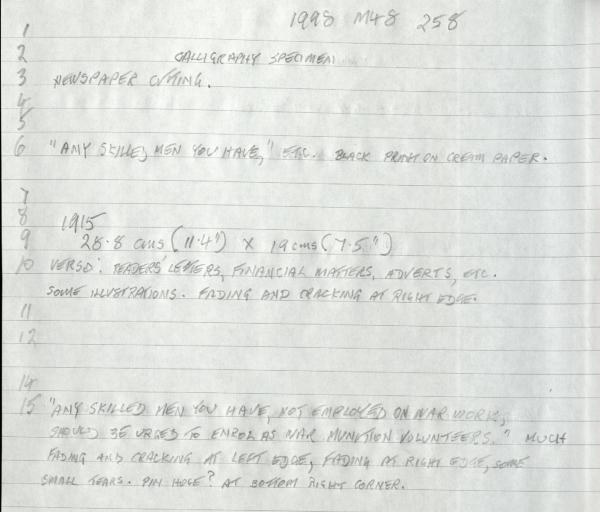 1998 M48 258
1
2 CALLIGRAPHY SPECIMEN
3 NEWSPAPER CUTTING.
4
5
6 "ANY SKILLED MEN YOU HAVE," ETC. BLACK PRINT ON CREAM PAPER.
7
8 1915
9 28.8 cms (11.4") X 19 cms (7.5")
10 VERSO: READERS' LETTERS, FINANCIAL MATTERS, ADVERTS, ETC.
SOME ILLUSTRATIONS. FADING AND CRACKING AT RIGHT EDGE.
11
12
14
15 "ANY SKILLED MEN YOU HAVE, NOT EMPLOYED ON WAR WORK,
SHOULD BE URGED TO ENROL AS WAR MUNITION VOLUNTEERS." MUCH
FADING AND CRACKING AT LEFT EDGE, FADING AT RIGHT EDGE, SOME
SMALL TEARS. PIN HOLE? AT BOTTOM RIGHT CORNER.